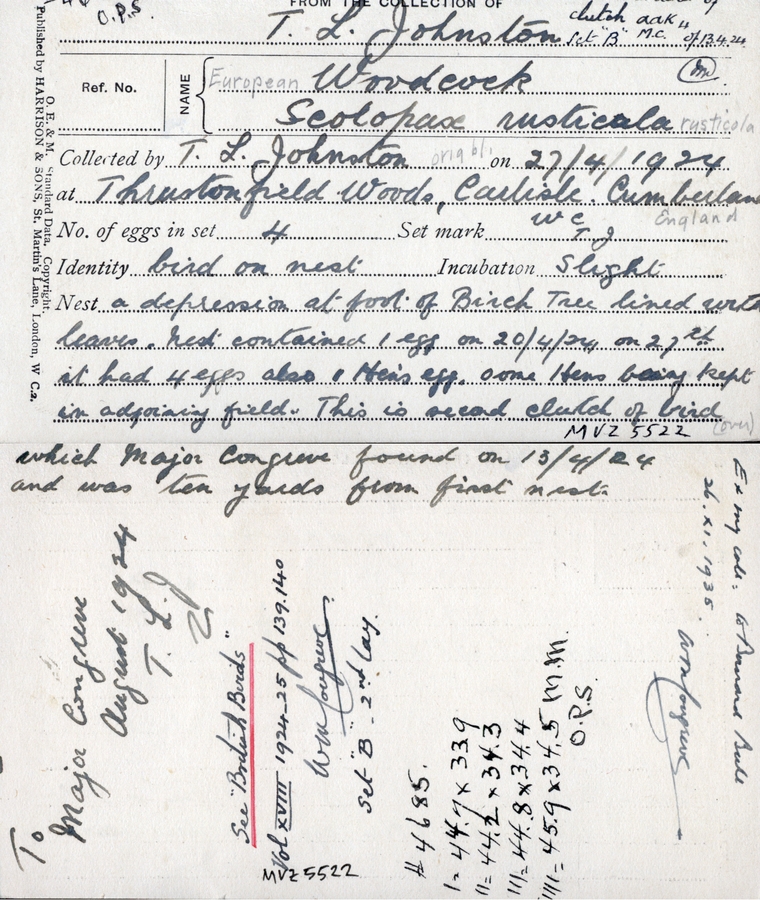 O.P.S
FROM THE COLLECTION OF
T. L. Johnston
clutch
Set "B" M.C. of 13.4.24
Ref. No.
NAME
European Woodcock
Scolopax rusticula rusticola
Collected by T. L. Johnston on 27/4/1924
at Thrustonfield Woods, Carlisle. Cumberland
England
No. of eggs in set 4 Set mark
W C
T J
Identity bird on nest Incubation Slight
Nest a depression at foot of Birch Tree lined with
leaves. Nest contained 1 egg on 20/4/24, on 27th
it had 4 eggs also 1 Hen's egg, some Hens being kept
in adjoining field. This is second clutch of bird
(over)
MVZ 5522
O. E. & M. Standard Data, Copyright.
Published by HARRISON & SONS, St. Martin's Lane, London, W C.2.
which Major Congreve found on 13/4/24
and was ten yards from first nest.
To
Major Congreve
August 1924
T. L. J
See "British Birds"
Vol XVIII 1924-25 pp 139.140
WM Congreve
Set "B" - 2nd lay.
MVZ 5522
# 4685.
I = 44.7 x 33.9
II = 44.2 x 34.3
III = 44.8 x 34.4
IIII = 45.9 x 34.5 m.m.
O.P.S.
Ex my coll: to Bernard
26.XI.1935.
WM Congreve